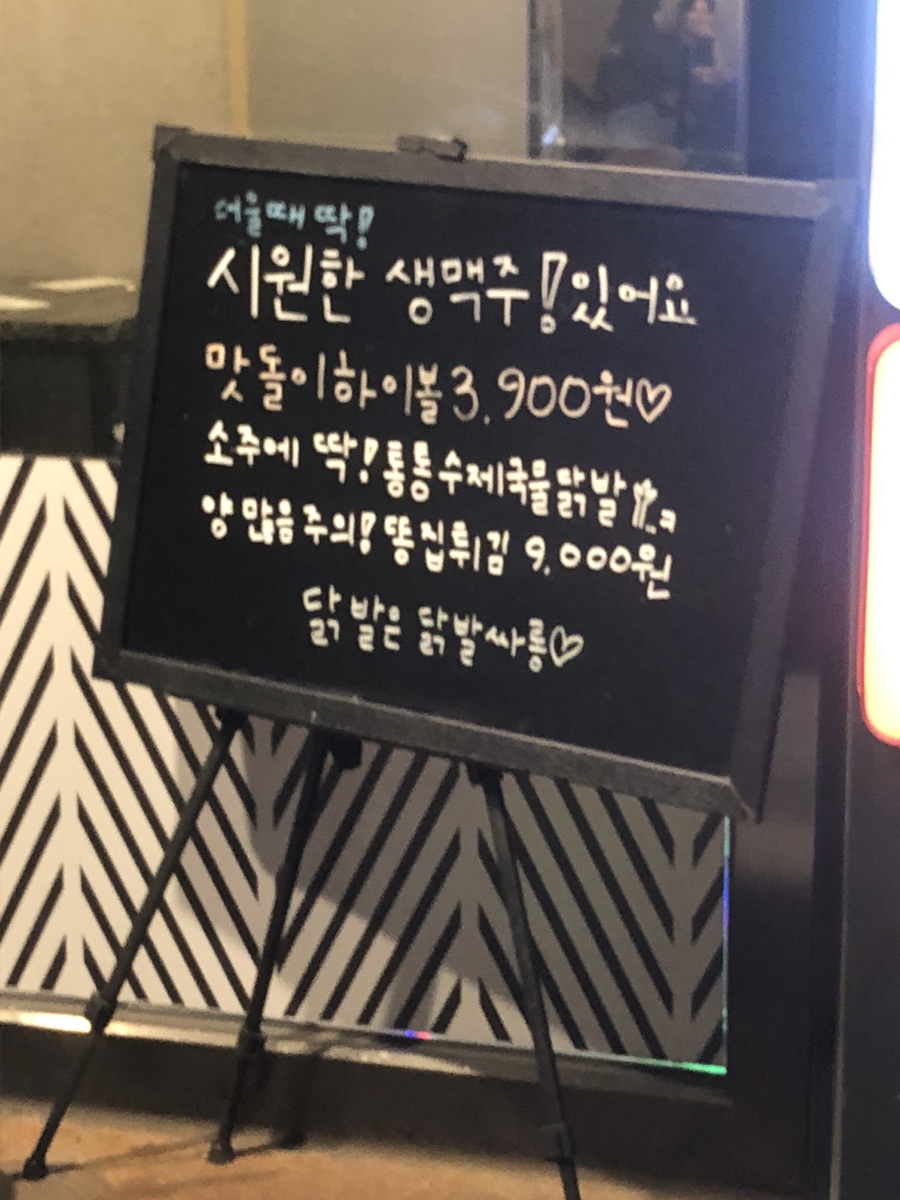 더울때 딱!
시원한 생맥주! 있어요
맛돌이하이볼 3,900원♡
소주에 딱! 통통수제국물닭발
양많음주의! 똥집튀김 9,000원
닭발은 닭발싸롱♡